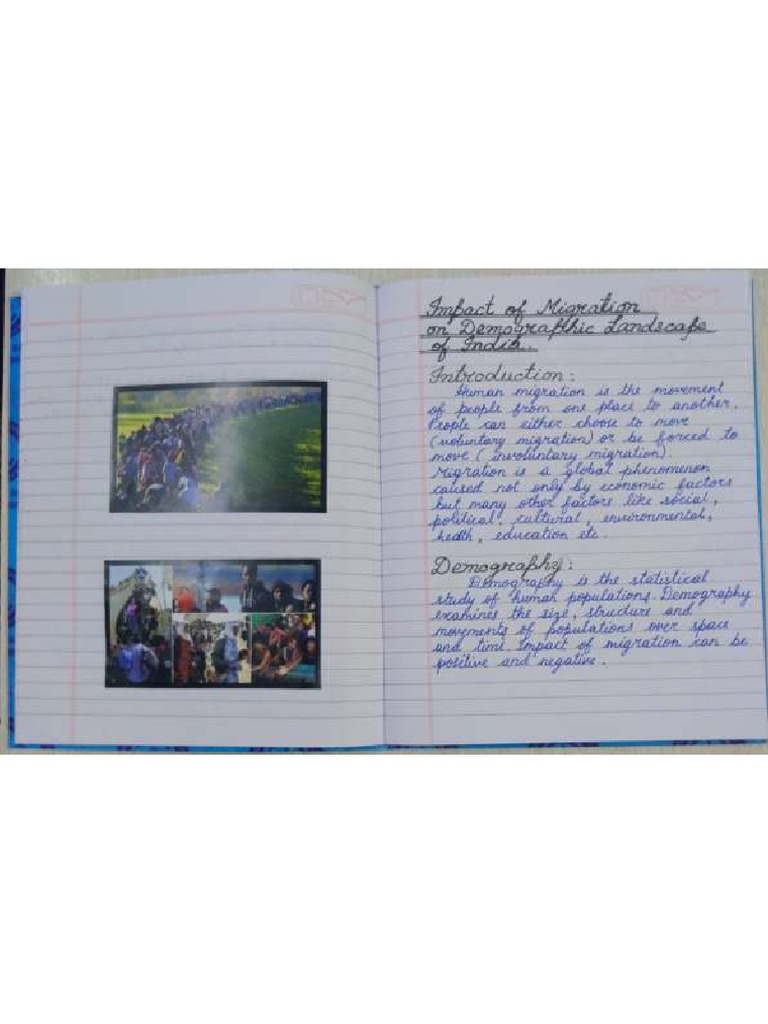 Impact of Migration
on Demographic Landscape
of India.
Introduction:
Human migration is the movement
of people from one place to another.
People can either choose to move
(voluntary migration) or be forced to
move (involuntary migration).
Migration is a global phenomenon
caused not only by economic factors
but many other factors like social,
political, cultural, environmental,
health, education etc.
Demography:
Demography is the statistical
study of human populations. Demography
examines the size, structure and
movements of populations over space
and time. Impact of migration can be
positive and negative.